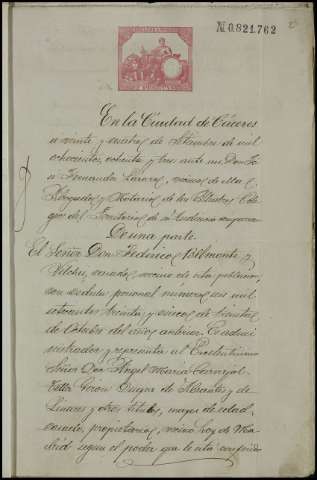 N 0.821.762
En la Ciudad de Cáceres
a veinte y cuatro de de mil
ochocientos ochenta y tres ante mi Don
Fernandez vecino de
Abogado y Notario de los Ilustres Cole
gios del Territorio de
De una parte
El Señor Don Federico Belmonte y
Vilches, casado, vecino de esta poblacion,
con cedula personal número seis mil
setecientos treinta y cinco de
de Octubre del año anterior
nistrador y representa al Excelentisimo
Señor Don Angel Maria Carvajal
Tellez Giron Duque de Abrantes y de
Linares y otros titulos, mayor de edad,
casado, propietario, vecino hoy de Ma
drid segun el poder que le esta conferido